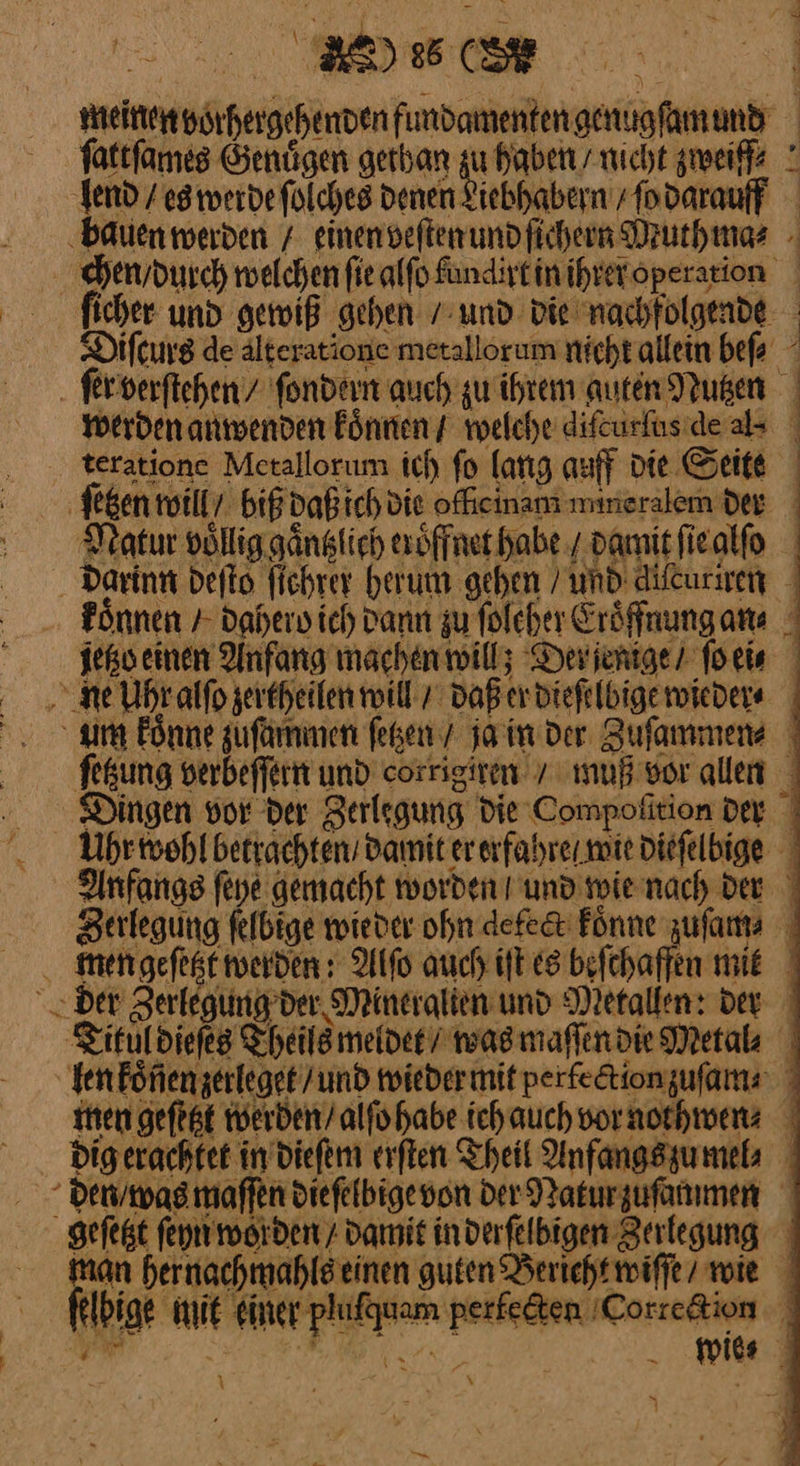 ) 86 (
meinen vorhergehenden fundamenten genugſam und
ſattſames Genuͤgen gethan zu haben / nicht zweiff⸗
lend / es werde ſolches denen Liebhabern / ſo darauff
bauen werden / einen veſten und ſichern Muth ma⸗
chen / durch welchen ſie alſo fundirt in ihrer operation
ſicher und gewiß gehen / und die nachfolgende
Diſcurs de alteratione metallorum nicht allein beſ⸗
ſer verſtehen / ſondern auch zu ihrem guten Nutzen
werden anwenden koͤnnen / welche diſcurſus de al-
teratione Metallorum ich ſo lang auff die Seite
ſetzen will / biß daß ich die officinam mineralem der
Natur voͤllig gaͤntzlich eroͤffnet habe / damit ſie alſo
darinn deſto ſichrer herum gehen / und diſcuriren
koͤnnen / dahero ich dann zu ſolcher Eroͤffnung an⸗
jetzo einen Anfang machen will; Derjenige / ſo ei⸗
ne Uhr alſo zertheilen will / daß er dieſelbige wieder⸗
um koͤnne zuſammen ſetzen / ja in der Zuſammen⸗
ſetzung verbeſſern und corrigiren / muß vor allen
Dingen vor der Zerlegung die Compoſition der
Uhr wohl betrachten / damit er erfahre / wie dieſelbige
Anfangs ſeye gemacht worden / und wie nach der
Zerlegung ſelbige wieder ohn defect koͤnne zuſam⸗
men geſetzt werden: Alſo auch iſt es beſchaffen mit
der Zerlegung der Mineralien und Metallen: der
Titul dieſes Theils meldet / was maſſen die Metal⸗
len koͤñen zerleget / und wieder mit perfection zuſam⸗
men geſetzt werden / alſo habe ich auch vor nothwen⸗
dig erachtet in dieſem erſten Theil Anfangs zu mel⸗
den / was maſſen dieſelbige von der Natur zuſammen
geſetzt ſeyn worden / damit in derſelbigen Zerlegung
man hernachmahls einen guten Bericht wiſſe / wie
ſelbige mit einer pluſquam perfecten Correction
wie⸗